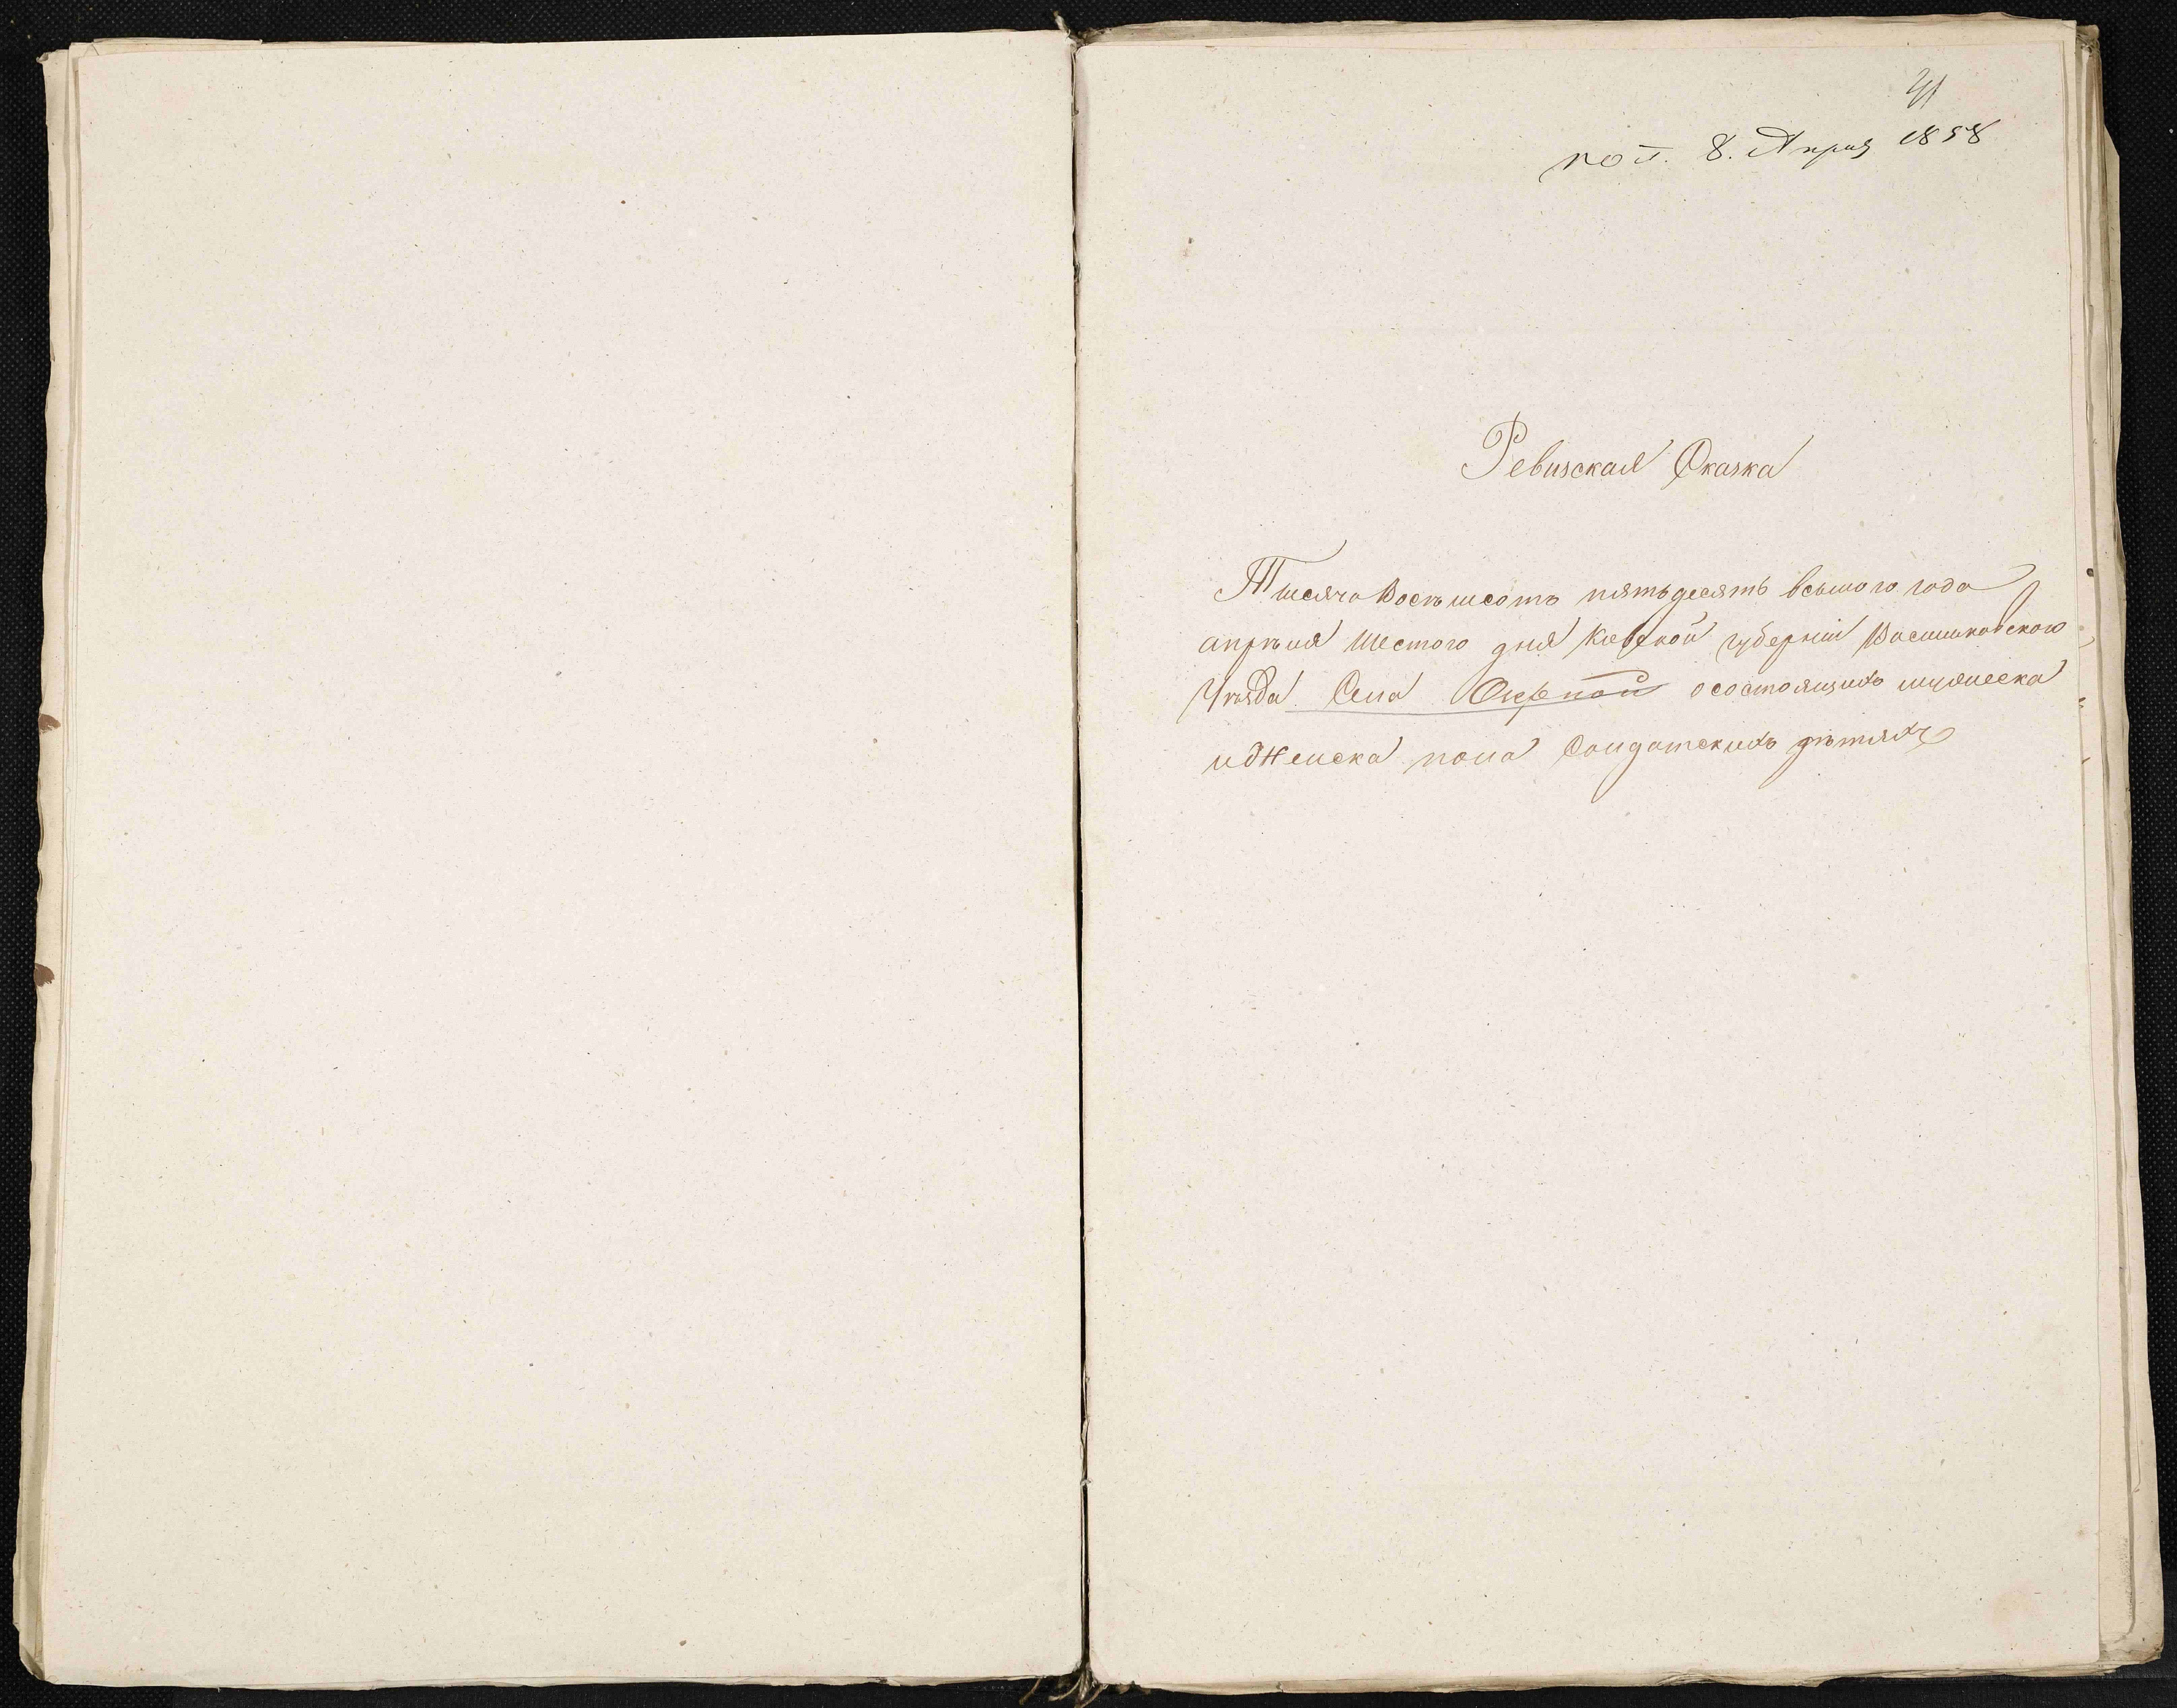 41
пол. 8. Апрѣля 1858
Ревизская Сказка
Тысяча восемьсотъ пятьдесятъ всьмого года
апрѣля Шестого дня Киевской губерніи Васильковского
Уѣзда Села осостоящихъ мужеска
иженска пола Солдатскихъ дѣтяхъ